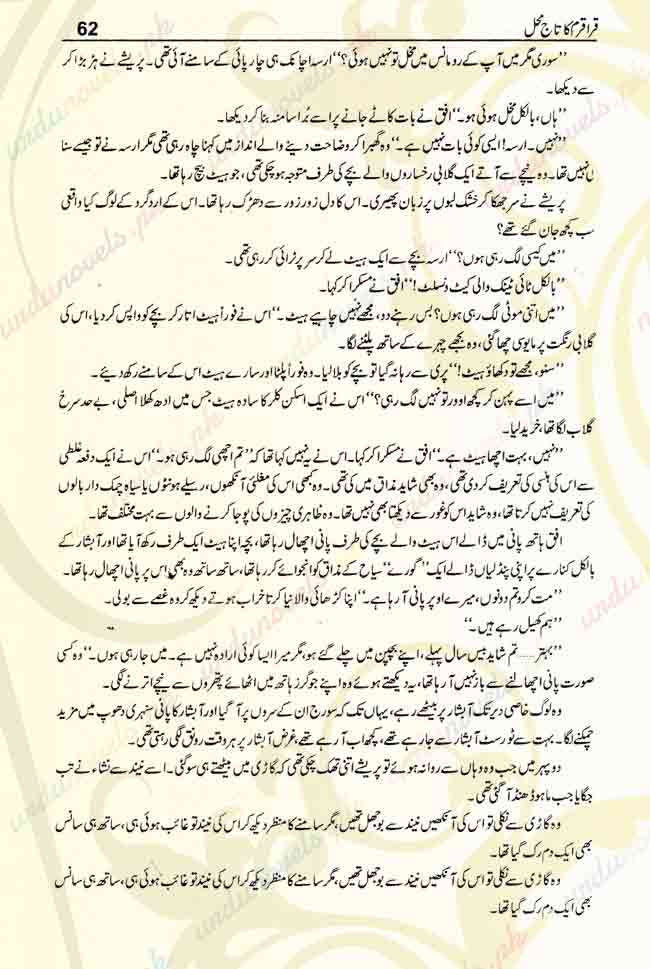 قراقرم کا تاج محل
62
’’سوری مگر میں آپ کے رومانس میں مخل تو نہیں ہوئی؟‘‘ ارسہ اچانک ہی چارپائی کے سامنے آئی تھی۔ پریشے نے ہڑبڑا کر
سے دیکھا۔
’’ہاں، بالکل مخل ہوئی ہو۔‘‘ افق نے بات کاٹے جانے پر اسے بُرا سا منہ بنا کر دیکھا۔
’’نہیں۔ ارسہ! ایسی کوئی بات نہیں ہے۔‘‘ وہ گھبرا کر وضاحت دینے والے انداز میں کہنا چاہ رہی تھی مگر ارسہ نے تو جیسے سنا
ں نہیں تھا۔ وہ نیچے سے آتے ایک گلابی رخساروں والے بچے کی طرف متوجہ ہو چکی تھی، جو ہیٹ بیچ رہا تھا۔
پریشے نے سر جھکا کر خشک لبوں پر زبان پھیری۔ اس کا دل زور زور سے دھڑک رہا تھا۔ اس کے ارد گرد کے لوگ کیا واقعی
سب کچھ جان گئے تھے؟
’’میں کیسی لگ رہی ہوں؟‘‘ ارسہ بچے سے ایک ہیٹ لے کر سر پر ٹرائی کر رہی تھی۔
’’بالکل ٹائی ٹینک والی کیٹ ونسلٹ!‘‘ افق نے مسکرا کر کہا۔
’’میں اتنی موٹی لگ رہی ہوں؟ بس رہنے دو، مجھے نہیں چاہیے ہیٹ۔‘‘ اس نے فوراً ہیٹ اتار کر بچے کو واپس کر دیا، اس کی
گلابی رنگت پر مایوسی چھا گئی، وہ بجھے چہرے کے ساتھ پلٹنے لگا۔
’’سنو، مجھے تو دکھاؤ ہیٹ!‘‘ پری سے رہا نہ گیا تو بچے کو بلا لیا۔ وہ فوراً پلٹا اور سارے ہیٹ اس کے سامنے رکھ دیئے۔
’’میں اسے پہن کر کچھ اوور تو نہیں لگ رہی؟‘‘ اس نے ایک اسکن کلر کا سادہ ہیٹ جس میں ادھ کھلا اصلی، بے حد سرخ
گلاب لگا تھا، خرید لیا۔
’’نہیں، بہت اچھا ہیٹ ہے۔‘‘ افق نے مسکرا کر کہا۔ اس نے یہ نہیں کہا تھا کہ ’’تم اچھی لگ رہی ہو۔‘‘ اس نے ایک دفعہ غلطی
سے اس کی ہنسی کی تعریف کر دی تھی، وہ بھی شاید مذاق میں کی تھی۔ وہ کبھی اس کی مغلئی آنکھوں، رسیلے ہونٹوں یا سیاہ چمک دار بالوں
کی تعریف نہیں کرتا تھا، وہ شاید اس کو غور سے دیکھتا بھی نہیں تھا۔ وہ ظاہری چیزوں کی پوجا کرنے والوں سے بہت مختلف تھا۔
افق ہاتھ پانی میں ڈالے اس ہیٹ والے بچے کی طرف پانی اچھال رہا تھا، بچہ اپنا ہیٹ ایک طرف رکھ آیا تھا اور آبشار کے
بالکل کنارے پر اپنی پنڈلیاں ڈالے ایک ’’گورے‘‘ سیاح کے مذاق کو انجوائے کر رہا تھا، ساتھ ساتھ وہ بھی اس پر پانی اچھال رہا تھا۔
’’مت کرو تم دونوں، میرے اوپر پانی آ رہا ہے۔‘‘ اپنا کڑھائی والا نیا کرتا خراب ہوتے دیکھ کر وہ غصے سے بولی۔
’’ہم کھیل رہے ہیں۔‘‘
’’بہتر ..... تم شاید بیس سال پہلے، اپنے بچپن میں چلے گئے ہو، مگر میرا ایسا کوئی ارادہ نہیں ہے۔ میں جا رہی ہوں۔‘‘ وہ کسی
صورت پانی اچھالنے سے باز نہیں آ رہا تھا، یہ دیکھتے ہوئے وہ اپنے جوگرز ہاتھ میں اٹھائے پتھروں سے نیچے اترنے لگی۔
وہ لوگ خاصی دیر تک آبشار پر بیٹھے رہے، یہاں تک کہ سورج ان کے سروں پر آ گیا اور آبشار کا پانی سنہری دھوپ میں مزید
چمکنے لگا۔ بہت سے ٹورسٹ آبشار سے جا رہے تھے، کچھ اب آ رہے تھے، غرض آبشار پر ہر وقت رونق لگی رہتی تھی۔
دوپہر میں جب وہ وہاں سے روانہ ہوئے تو پریشے اتنی تھک چکی تھی کہ گاڑی میں بیٹھتے ہی سو گئی۔ اسے نیند سے نشاء نے تب
جگایا جب ماہوڈھنڈ آ گئی تھی۔
وہ گاڑی سے نکلی تو اس کی آنکھیں نیند سے بوجھل تھیں، مگر سامنے کا منظر دیکھ کر اس کی نیند تو غائب ہوئی ہی، ساتھ ہی سانس
بھی ایک دم رک گیا تھا۔
وہ گاڑی سے نکلی تو اس کی آنکھیں نیند سے بوجھل تھیں، مگر سامنے کا منظر دیکھ کر اس کی نیند تو غائب ہوئی ہی، ساتھ ہی سانس
بھی ایک دم رک گیا تھا۔